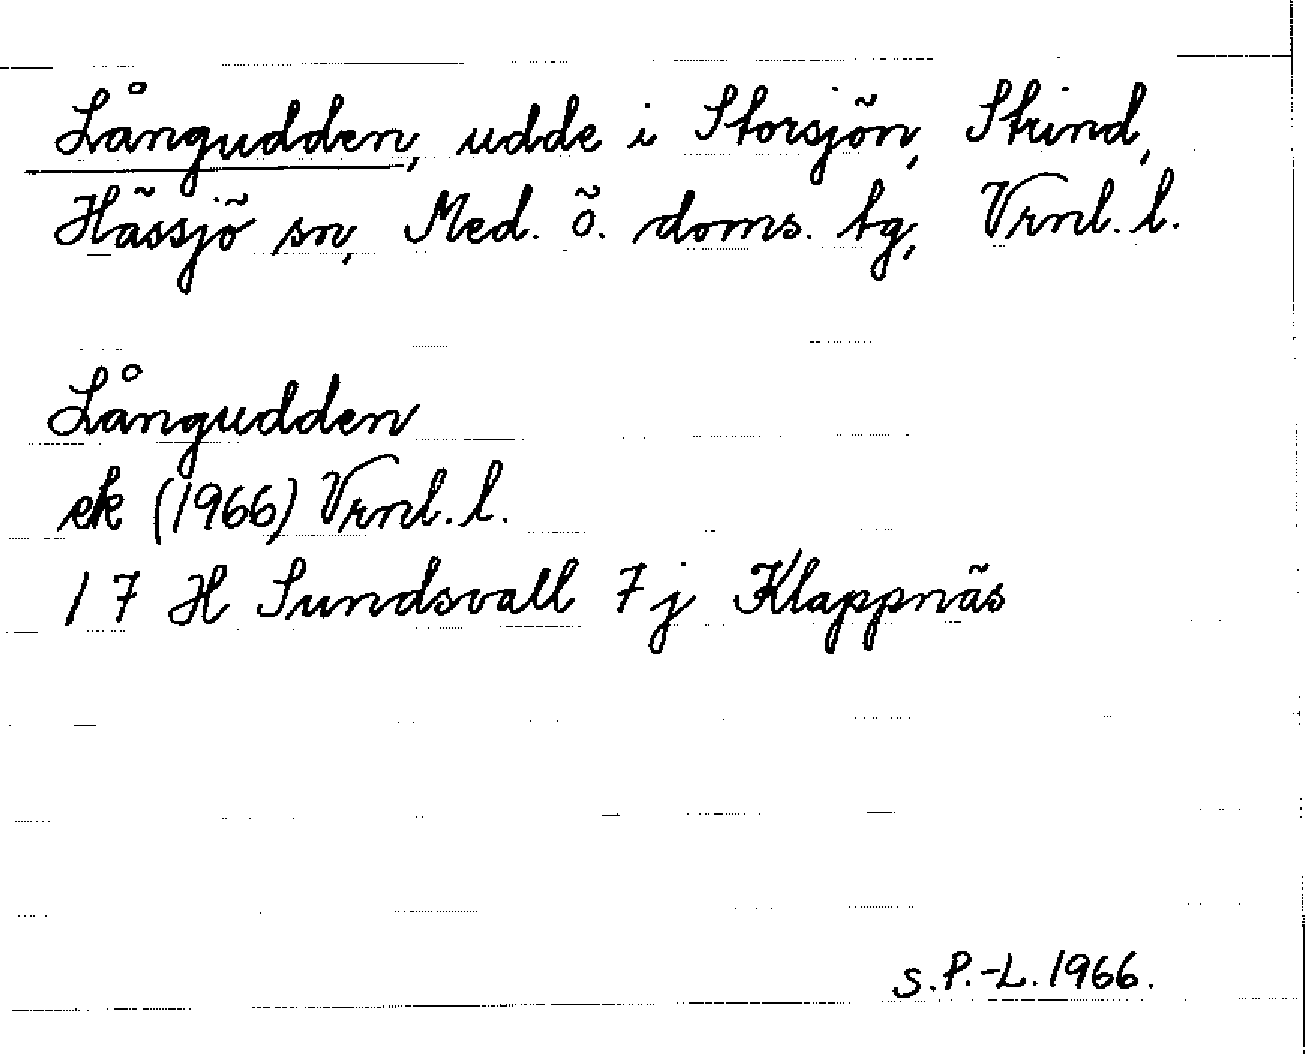 Långudden, udde i Storsjön, Strind,
Hässjö sn, Med. ö. doms. tg, Vrnl. l.
Långudden
ek (1966) Vrnl. l.
17 H Sundsvall 7 j Klappnäs
S.P.-L. 1966.